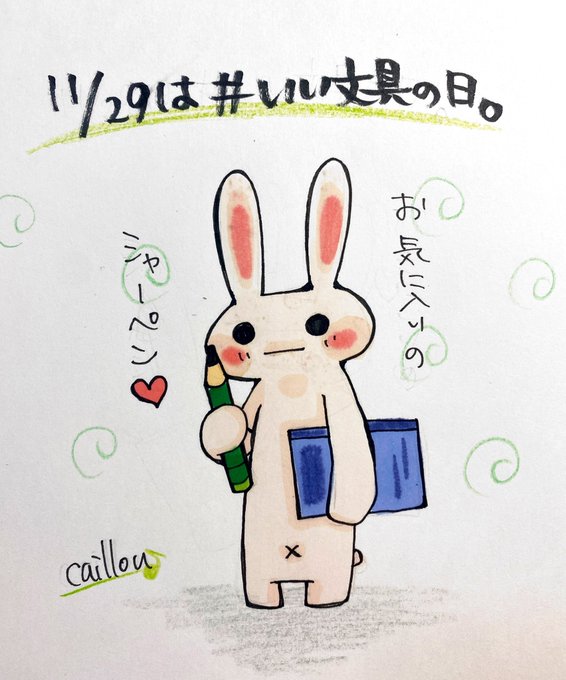 11/29は#いい文具の日。
お気に入りの
シャーペン♥
caillou